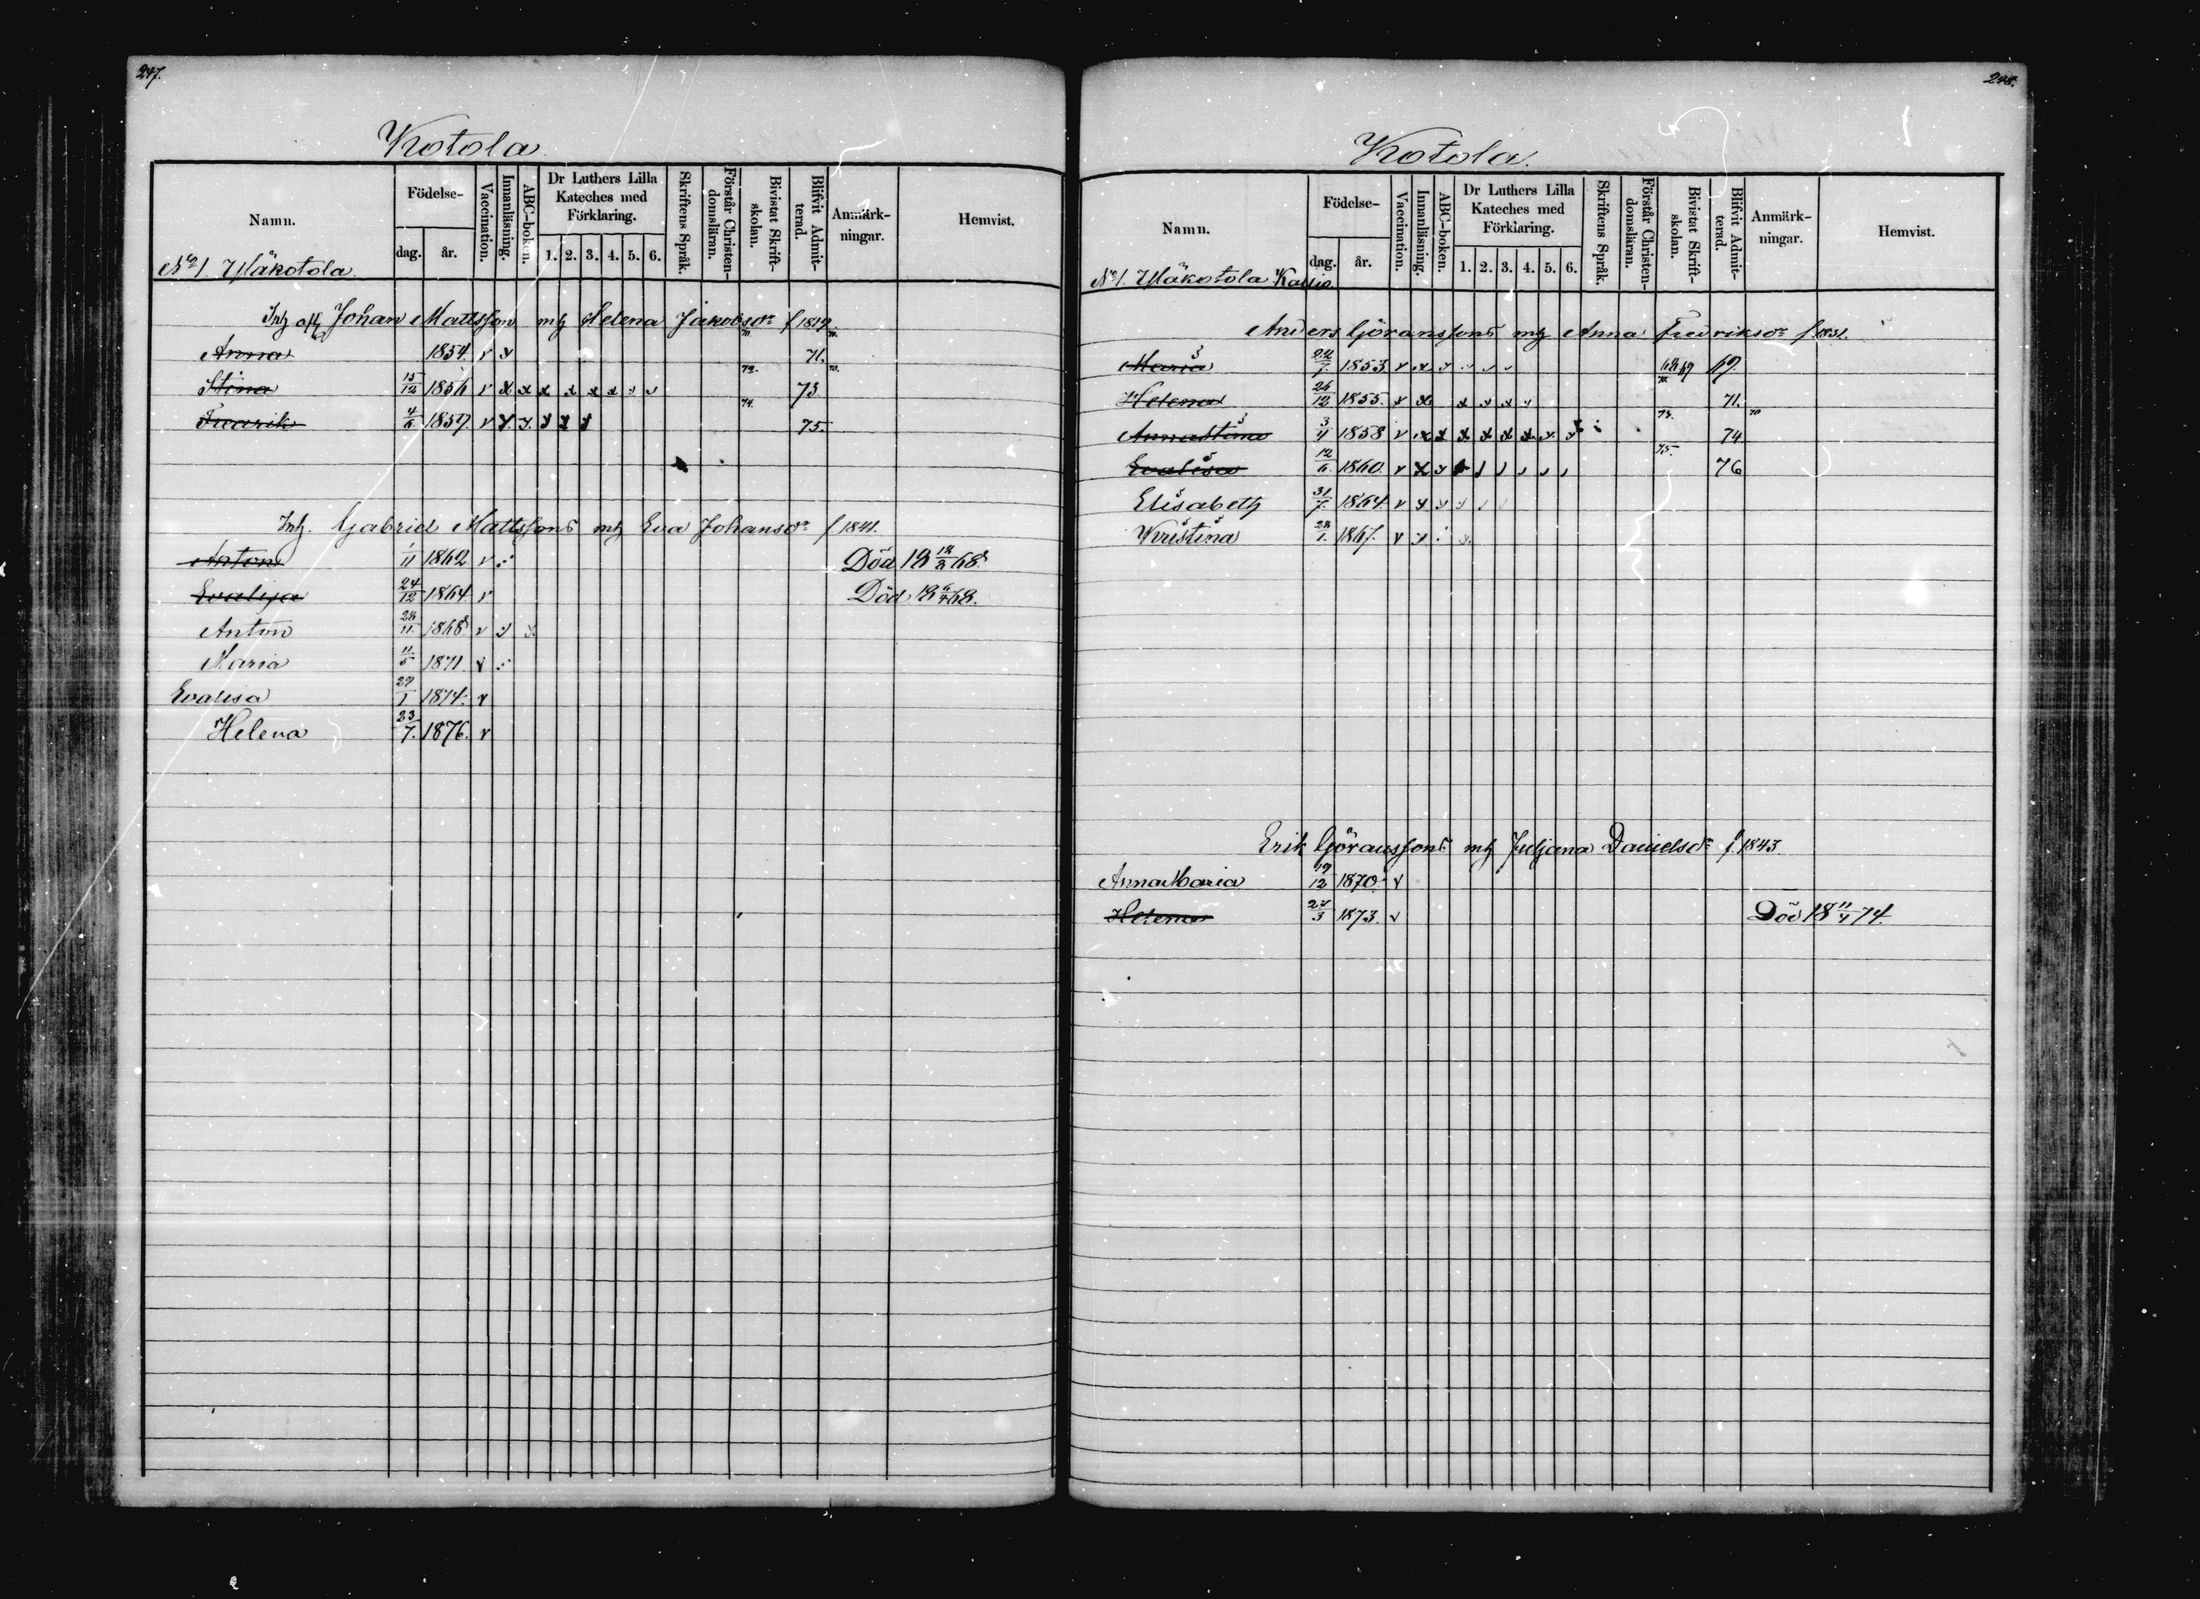 247.
Kotola
Namn.
Födelse-
dag.
år.
Vaccination.
Innanläsning.
ABC-boken.
Dr Luthers Lilla
Kateches med
Förklaring.
1. 2. 3. 4. 5. 6.
Skriftens Språk.
Förstår Christen-
domsläran.
Bivistat Skrift-
skolan.
Blifvit Admit-
terad.
Anmärk-
ningar.
Hemvist.
No 1. Yläkotola
Johan Mattsson Helena Jakobsdr f 1819.
Anna 1854 v x 71.
Stina 15/12 1856 v x x x x x x v v 72. 73
Fredrik 4/6 1857 v x x x x x 74. 75.
Gabriel Mattssons Eva Johansdr f 1841.
Anton 1/11 1862 v Död 18 12/2 68.
Evalisa 24/12 1864 v Död 18 68.
Anton 26/11 1868 v
Maria 11/5 1871 v
Evalisa 29/1 1874. v
Helena 23/7. 1876. v
248.
Kotola.
Namn.
Födelse-
dag.
år.
Vaccination.
Innanläsning.
ABC-boken.
Dr Luthers Lilla
Kateches med
Förklaring.
1. 2. 3. 4. 5. 6.
Skriftens Språk.
Förstår Christen-
domsläran.
Bivistat Skrift-
skolan.
Blifvit Admit-
terad.
Anmärk-
ningar.
Hemvist.
No 1. Yläkotola Kallio
Anders Göranssons Anna Fredriksdr f 1831.
Maria 22/7 1853 v x 68 69 69.
Helena 26/12 1855. v x x x x 71.
Annastina 3/4 1858 v x x x x x x x x 73. 74
Evalisa 12/6 1860. v x 75. 76
Elisabeth 31/7. 1864. v
Kristina 26/1. 1867. v
Erik Göranssons Juljana Danielsdr f. 1843.
AnnaMaria 19/12 1870. v
Helena 27/3 1873. v Död 18 11/4 74.